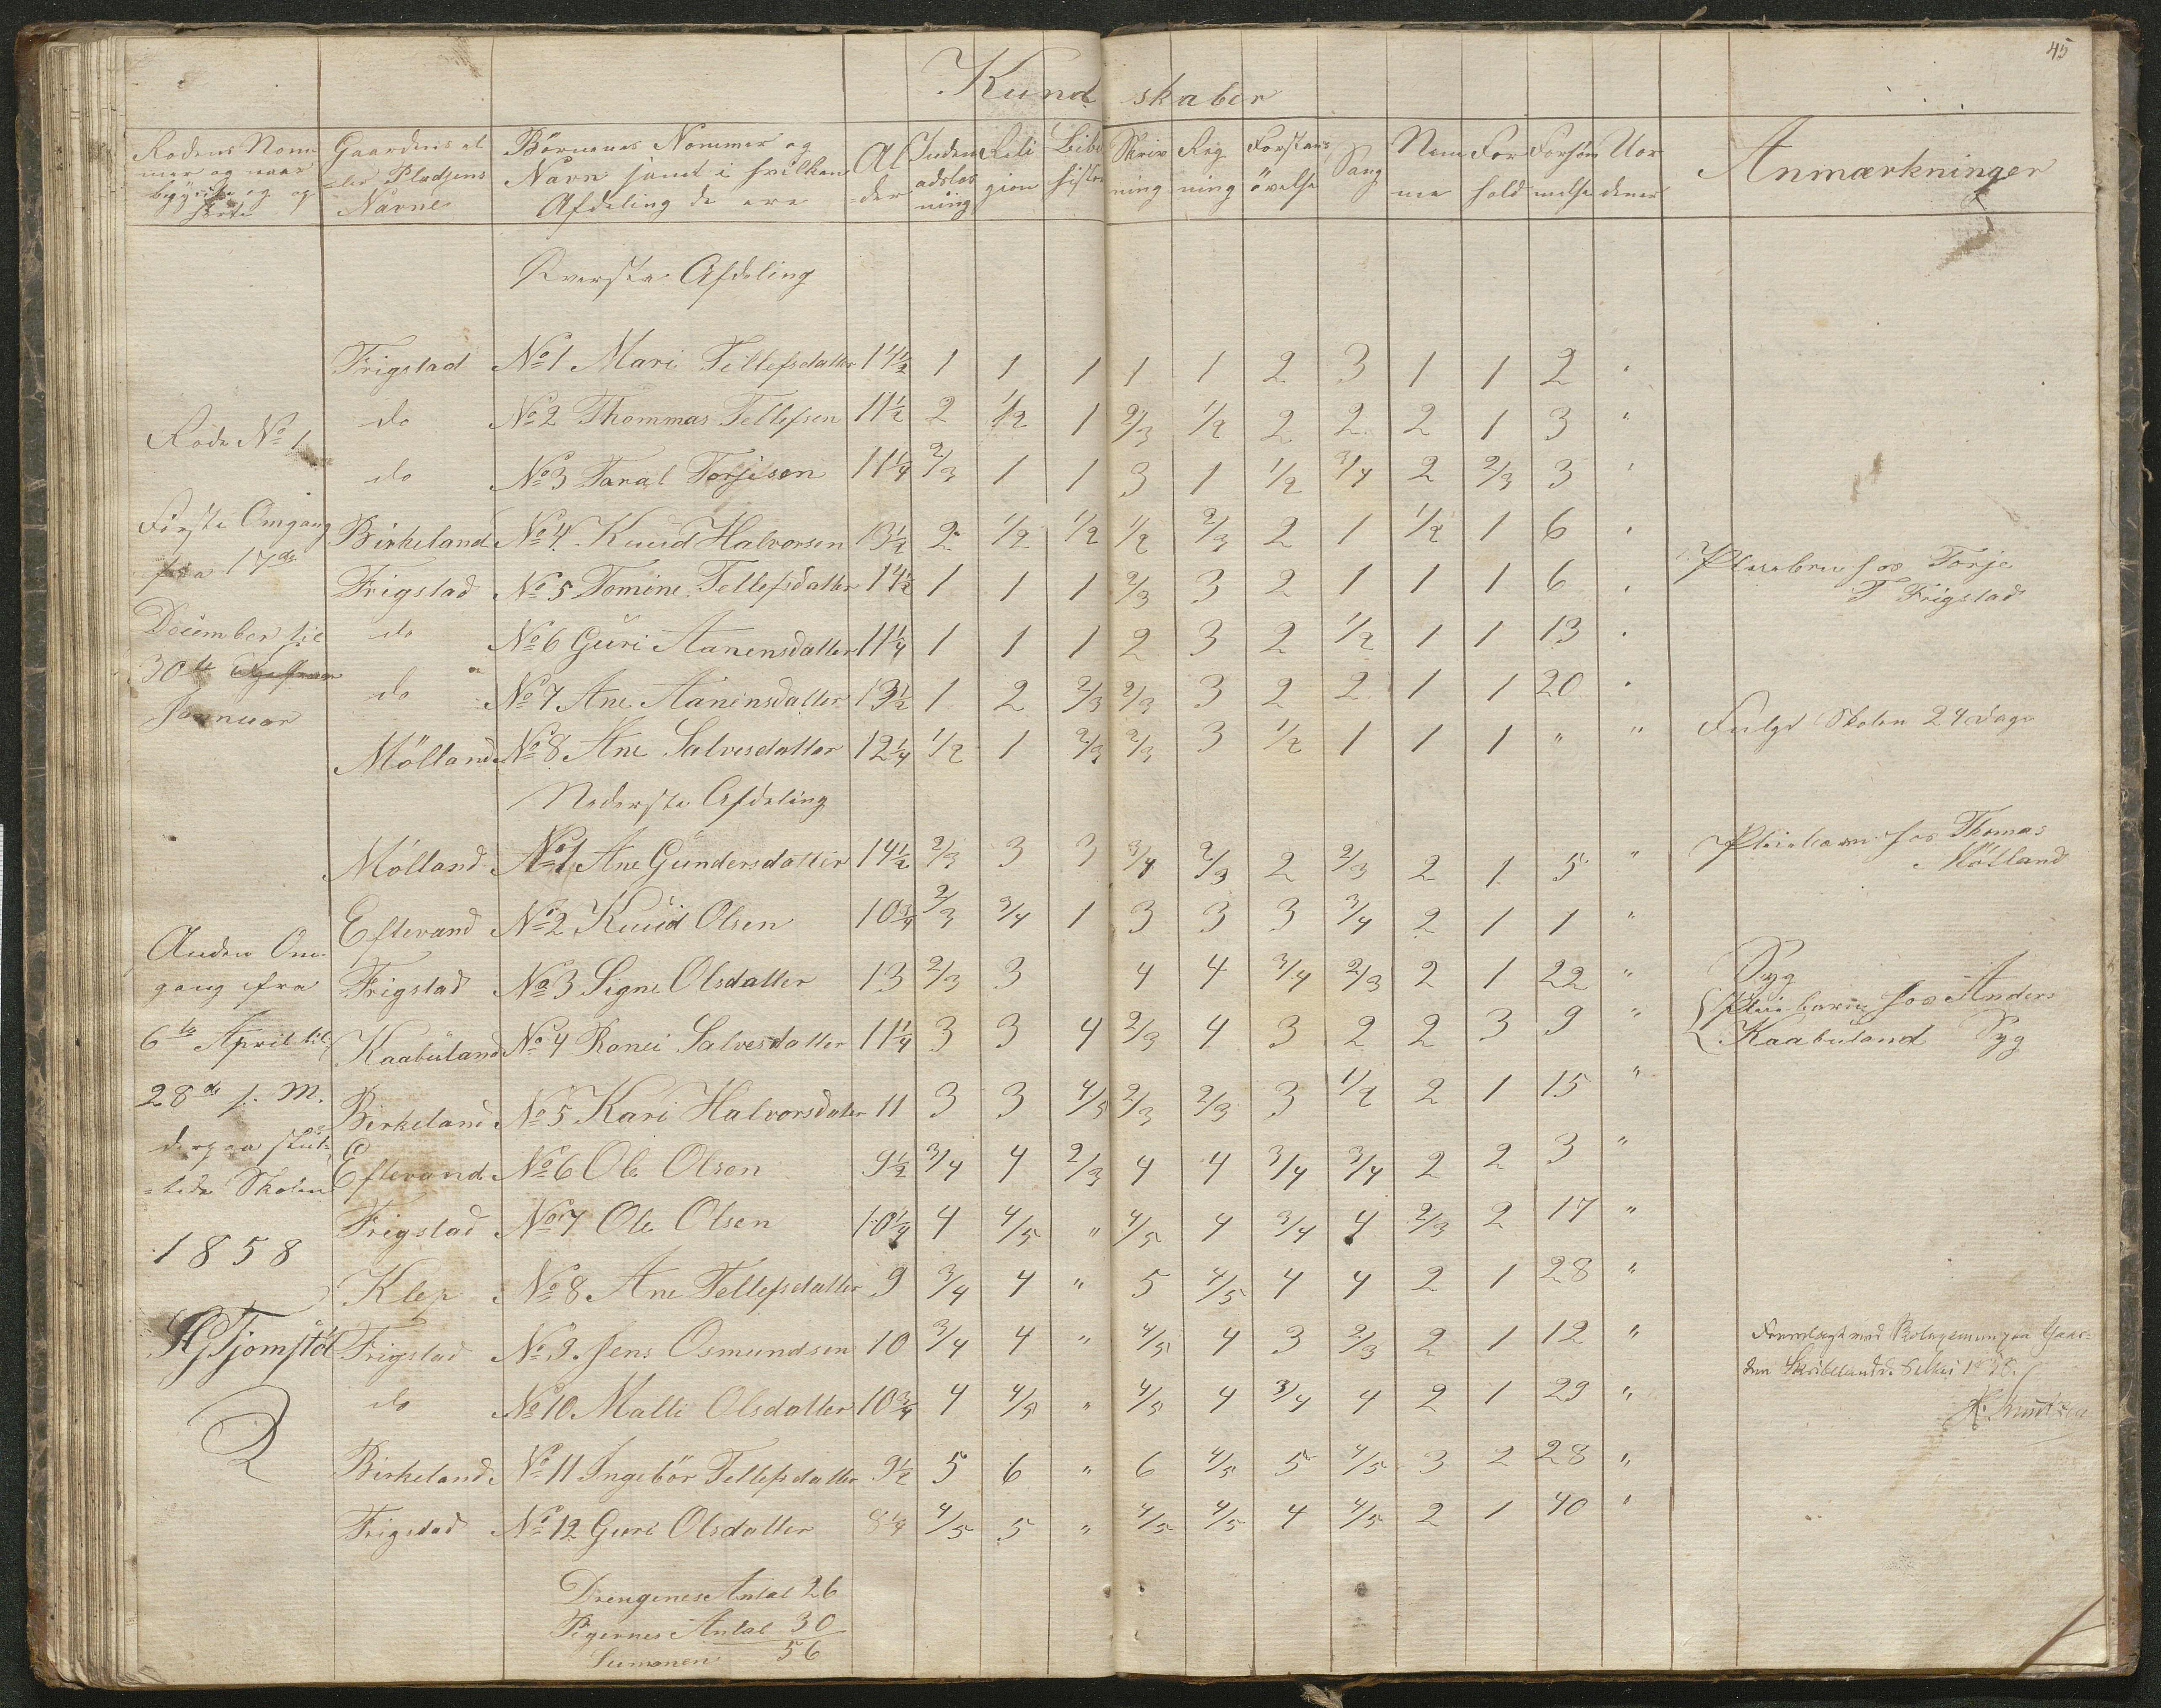 45
Kund skaber
Rodens Nom- Gaardens el- Børnenes Nommer og Al Inden Reli Bibl Skriv Reg Forstands Sang Nem For Forsøm Uor Anmærkninger
mer og naar =ler Pladsens Navn samt i hvilken =der adslæs gion histor ning ning øvelse me hold melse dener
begyndte og op Navne Afdeling de ere ning
hørte
Øverste Afdeling
Frigstad No 1 Mari Tellefsdatter 14½ 1 1 1 1 1 2 3 1 1 2 "
Rode No 1 do No 2 Thommas Tellefsen 11½ 2 1/2 1 2/3 1/2 2 2 2 1 3 "
do No 3 Taral Torjisen 11¼ 2/3 1 1 3 1 1/2 3/4 2 2/3 3 "
Første Omgang Birkeland No 4 Knud Halvorsen 13½ 2 1/2 1/2 1/2 2/3 2 1 1/2 1 6 "
fra 17de Frigstad No 5 Tomine Tellefsdatter 14½ 1 1 1 2/3 3 2 1 1 1 6 " Pleiebarn hos Torje
T Frigstad
December til do No 6 Guri Aanensdatter 11¼ 1 1 1 2 3 2 1/2 1 1 13 "
30te do No 7 Ane Aanensdatter 13½ 1 2 2/3 2/3 3 2 2 1 1 20 "
Januar Mølland No 8 Ane Salvesdatter 12¼ 1/2 1 2/3 2/3 3 1/2 1 1 1 " " Fulgt Skolen 24 Dage
Nederste Afdeling
Mølland No 1 Ane Gundersdatter 14½ 2/3 3 3 3/4 2/3 2 2/3 2 1 5 " Pleiebarn hos Thomas
Mølland
Eftevand No 2 Knud Olsen 10¾ 2/3 3/4 1 3 3 3 3/4 2 1 1 "
Anden Om-
gang fra Frigstad No 3 Signe Olsdatter 13 2/3 3 4 4 3/4 2/3 2 1 22 " Syg
6te April til Kaabuland No 4 Ronei Salvesdatter 11¼ 3 3 4 2/3 4 3 2 2 3 9 " Pleiebarn hos Anders
Kaabuland Syg
28de s. M. Birkeland No 5 Kari Halvorsdater 11 3 3 4/5 2/3 2/3 3 1/2 2 1 15 "
derpaa slut- Eftevand No 6 Ole Olsen 9½ 3/4 4 2/3 4 4 3/4 3/4 2 2 3 "
=tede Skolen
Frigstad No 7 Ole Olsen 10¼ 4 4/5 " 4/5 4 3/4 4 2/3 2 17 "
1858
Klep No 8 Ane Tellefsdatter 9 3/4 4 " 5 4/5 4 4 2 1 28 "
Tjomstøl Frigstad No 9 Jens Osmundsen 10 3/4 4 " 4/5 4 3 2/3 2 1 12 " Fremlagt ved paa Gaar-
den
do No 10 Malli Olsdatter 10¾ 4 4/5 " 4/5 4 3/4 4 2 1 29 "
Birkeland No 11 Ingebor Tellefsdatter 9½ 5 6 " 6 4/5 5 4/5 3 2 28 "
Frigstad No 12 Guri Olsdatter 8¼ 4/5 5 " 4/5 4/5 4 4/5 2 1 40 "
Drengenes Antal 26
Pigernes Antal 30
Summen 56